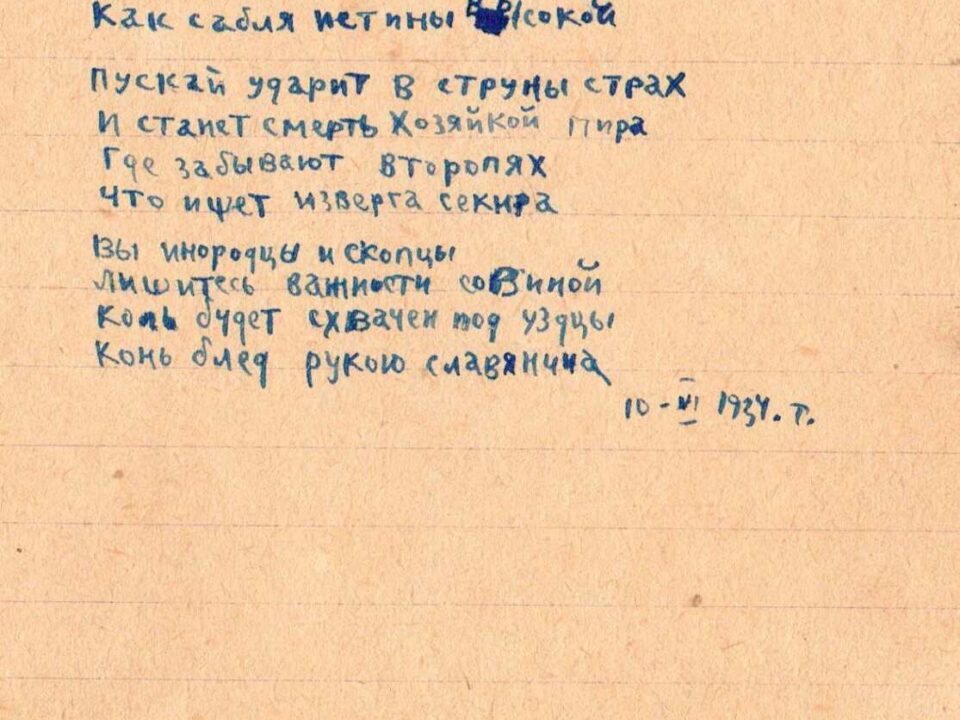 Как сабля истины высокой
Пускай ударит в струны страх
И станет смерть Хозяйкой пира
Где забывают второпях
Что ищет изверга секира
Вы инородцы и скопцы
Лишитесь важности совиной
Коль будет схвачен под уздцы
Конь блед рукою славянина
10-VI 1934. г.